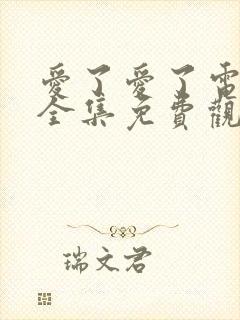 愛了愛了電
全集免費觀
瑞文君